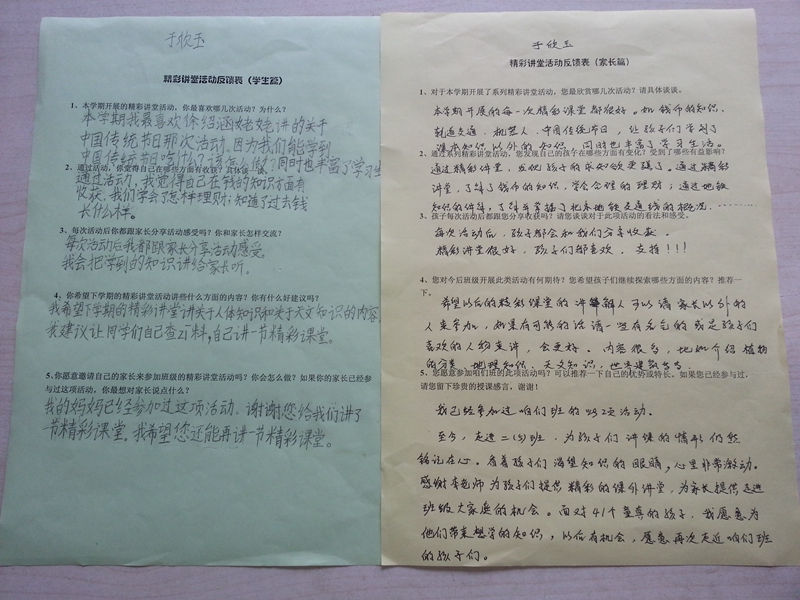 于欣玉
精彩讲堂活动反馈表（学生篇）
1、本学期开展的精彩讲堂活动，你最喜欢哪几次活动？为什么？
本学期我最喜欢徐绍涵姥姥讲的关于
中国传统节日那次活动。因为我们能学到
中国传统节日吃什么？该怎么做？同时也丰富了学习生
2、通过活动，你觉得自己在哪些方面有收获？具体谈一谈。
通过活动，我觉得自己在钱的知识方面有
收获。我们学会了怎样理财，知道了过去钱
长什么样。
3、每次活动后你都跟家长分享活动感受吗？你和家长怎样交流？
每次活动后我都跟家长分享活动感受。
我会把学到的知识讲给家长听。
4、你希望下学期的精彩讲堂活动讲些什么方面的内容？你有什么好建议吗？
我希望下学期的精彩讲堂讲关于人体知识和关于天文知识的内容
我建议让同学们自己查资料，自己讲一节精彩课堂。
5、你愿意邀请自己的家长来参加班级的精彩讲堂活动吗？你会怎么做？如果你的家长已经参
与过这项活动，你最想对家长说点什么？
我的妈妈已经参加过这项活动。谢谢您给我们讲了
一节精彩课堂。我希望您还能再讲一节精彩课堂。
于欣玉
精彩讲堂活动反馈表（家长篇）
1、对于本学期开展了系列精彩讲堂活动，您最欣赏哪几次活动？请具体谈谈。
本学期开展的每一次精彩课堂都很好。如钱币的知识、
轨道交通、机器人、中国传统节日，让孩子们学到了
课本知识以外的知识，同时也丰富了学习生活。
2、通过系列精彩讲堂活动，您发现自己的孩子在哪些方面有变化？受到了哪些有益影响？
通过精彩课堂，发现孩子的求知欲更强了。通过精彩
讲堂，了解了钱币的知识，学会合理的理财；通过地铁
知识的讲座，了解并掌握了北京地铁及道线的概况……
3、孩子每次活动后都跟您分享收获吗？请您谈谈对于此项活动的看法和感受。
每次活动后，孩子都会和我们分享收获。
精彩讲堂很好，孩子们都喜欢，支持！！！
4、您对今后班级开展此类活动有何期待？您希望孩子们继续探索哪些方面的内容？推荐一
下。
希望以后的精彩课堂的讲解人可以请家长以外的
人来参加，如果有可能的话请一些有名气的或是孩子们
喜欢的人物来讲，会更好。内容很多，比如介绍植物
的分类、地理知识、天文知识，世界建筑等等
5、您愿意参加咱们班的此项活动吗？可以推荐一下自己的优势或特长。如果您已经参与过，
请您留下珍贵的授课感言，谢谢！
我已经参加过咱们班的此项活动。
至今，走进二（3）班，为孩子们讲课的情形仍然
铭记在心。看着孩子们渴望知识的眼睛，心里非常激动。
感谢李老师为孩子们提供精彩的课外讲堂，为家长提供走进
班级大家庭的机会。面对41个童真的孩子，我愿意为
他们带来想学的知识，以后有机会，愿意再次走近咱们班
的孩子们。